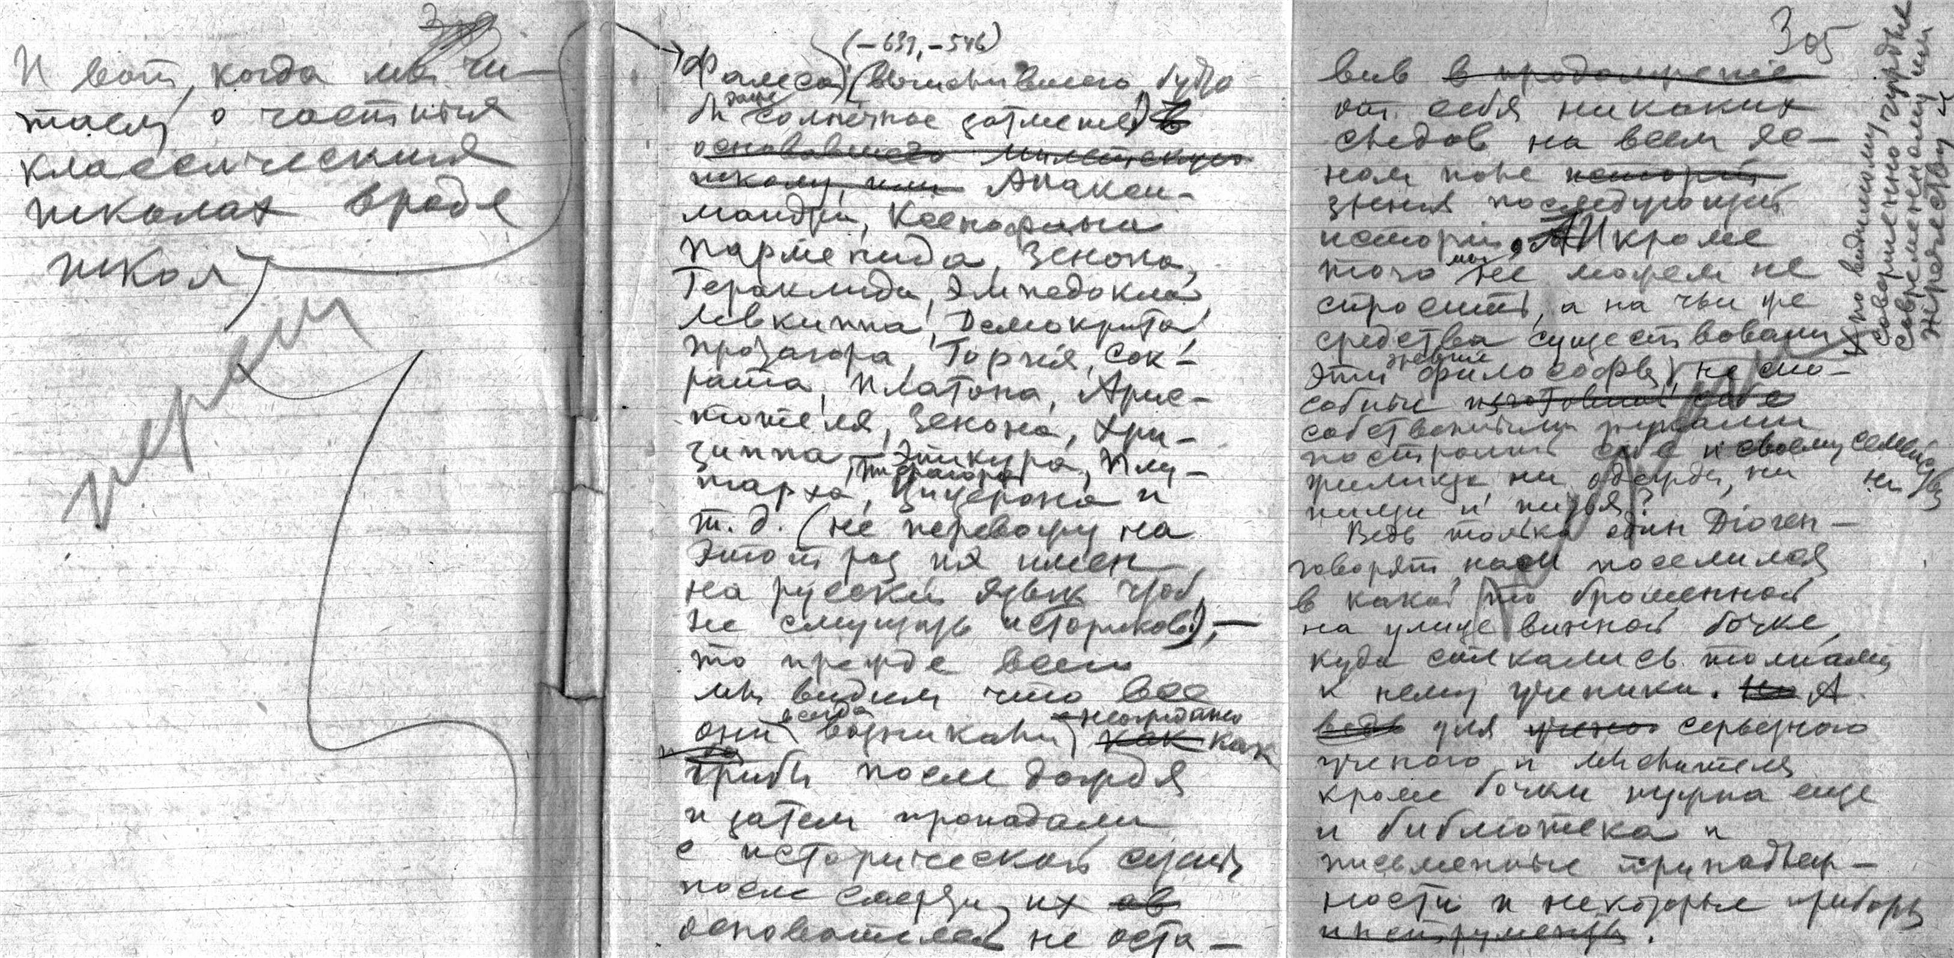 И вот, когда мы чи-
таем о частных
классических
школах вроде
школ
(−639, −546)
Фалеса (вычислившего, будто
бы даже солнечное затмение)
основавшего Милетскую
школу, или Анакси-
мандра, Ксенофана
Парменида, Зенона,
Гераклида, Эмпедокла,
Левкиппа, Демокрита,
Протагора, Горгия, Сок-
рата, Платона, Арис-
тотеля, Зенона, Хри-
зиппа, Эпикура, Плу-
тарха, Пифагора, Цицерона и
т. д. (не перевожу на
этот раз их имен
на русский язык чтоб
не смущать историков!), —
то прежде всего
мы видим что все
они всегда возникали неожиданно как как
грибы после дождя
и затем пропадали
с исторической сцены
после смерти их
основателей не оста-
305
вив в продолжение
от себя никаких
следов на всем яс-
ном поле истории
зрения последующей
истории. И кроме
того мы не можем не
спросить, а на чьи же
средства существовали
эти древние философы, не спо-
собные изготовить себе
собственными руками
построить себе и своему семейству
жилища ни одежды, ни ни
пищи и питья?
по видимому
совершенно чуждые
современному им
жречеству и
Ведь только один Діоген —
говорят нам поселился
в какой то брошенной
на улице винной бочке,
куда стекались толпами
к нему ученики. Но А
ведь для серьезного
ученого и мыслителя
кроме бочки нужна еще
и библиотека и
письменные принадлеж-
ности и некоторые приборы
инструменты.